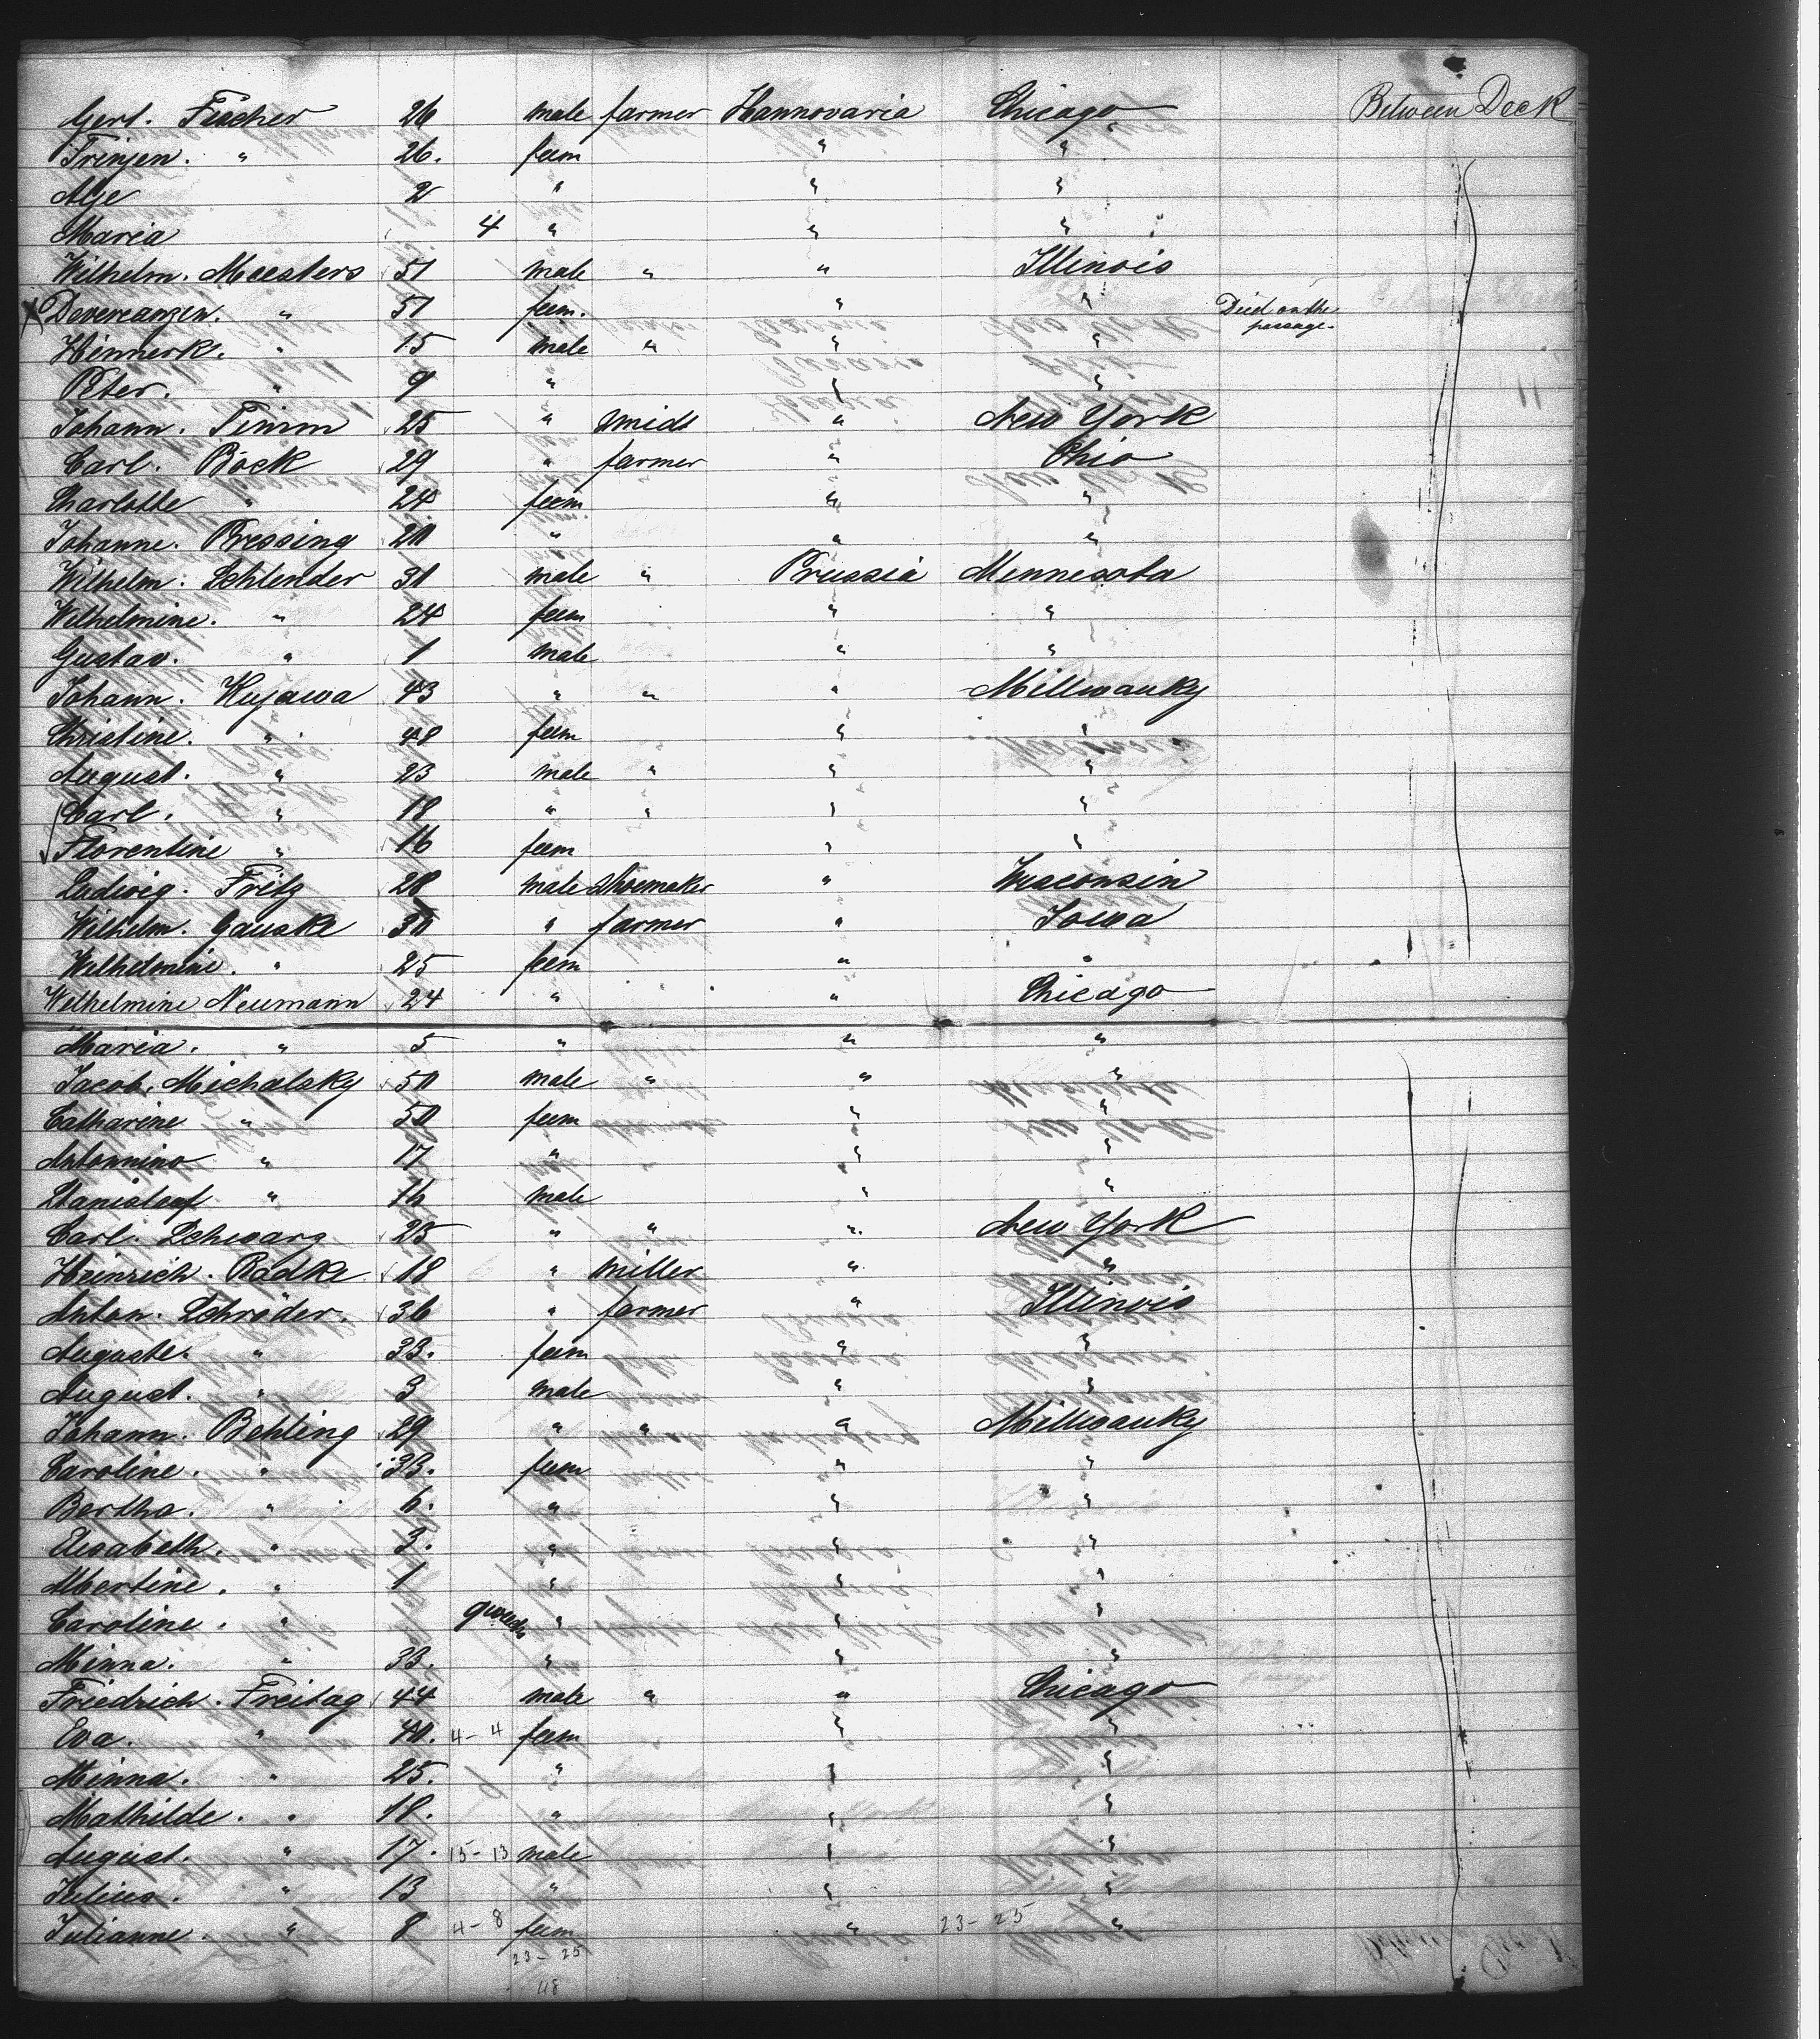 Gert. Fischer 26 male farmer Hannovaria Chicago Between Deck
Trinjen. " 26. feem " "
Alje 2 " " "
Maria 4 " " "
Wilhelm. Maesters 51 male " " Illinois
" 51 feem. " " Died on the
passage.
Hinnerk. " 15 male " " "
Peter. " 9 " " "
Johann. Timm 25 " smids " New York
Carl. Böck 29 " farmer " Ohio
Charlotte " 24 feem " "
Johanne. Pressing 20 " " "
Wilhelm. Schlender 30 male " Prussia Mennesota
Wilhelmine. " 24 feem " "
Gustav. " 1 male " "
Johann. Kujawa 43 " " " Millwauky
Christine. " 48 feem " "
August. " 23 male " " "
Carl. " 18 " " " "
Florentine " 16 feem " "
Ludwig. Fritz 28 male shoemaker " Wisconsin
Wilhelm. Gauske 30 " farmer " Iowa
Wilhelmine. " 25 feem " "
Welhelmine Neumann 24 " " Chicago
Maria. " 5 " " "
Jacob. Michalsky 50 male " " "
Catharine " 50 feem " "
Antonnino " 17 " " "
Stanislaaf " 16 male " "
Carl. Schwarz 25 " " " New York
Heinrich. Radke 18 " miller " "
Anton. Schröder. 36 " farmer " Illinois
Auguste. " 33. feem " "
August. " 3 male " "
Johann. Behling 29 " " " Millwauky
Caroline. " 33. feem " "
Bertha. " 6. " " "
Elisabeth. " 3. " " "
Albertine. " 1 " " "
Caroline. " " " "
Minna. " 33. " " "
Friedrich. Freitag 44 male " " Chicago
Eva. " 40. 4-4 feem " "
Minna. " 25. " " "
Mathilde. " 18. " " "
August. " 17. 15-13 male " "
Julius. " 13 " " "
Julianne. " 8 4-8 feem " 23-25 "
23-25
48